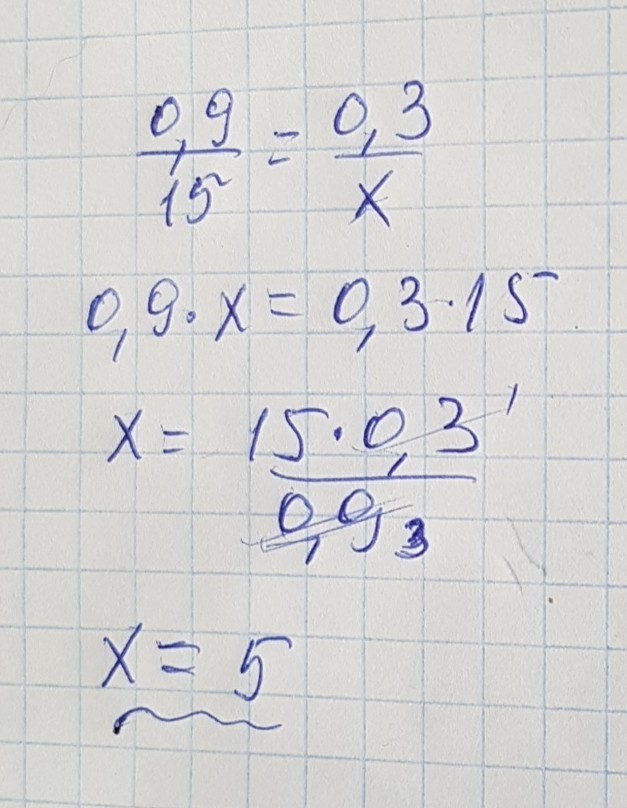 0,9/15 = 0,3/x
0,9·x = 0,3·15
x = 15·0,3 1/0,9 3
x = 5